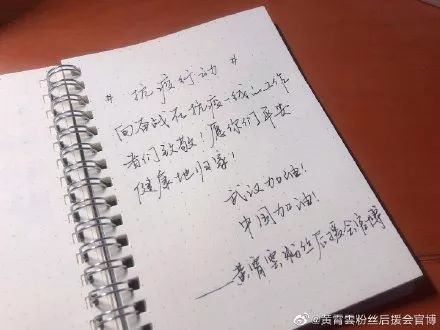 # 抗疫行动 #
向奋战在抗疫一线的工作
者们致敬！愿你们平安
健康地归家！
武汉加油！
中国加油！
——黄霄雲粉丝后援会官博
@黄霄雲粉丝后援会官博